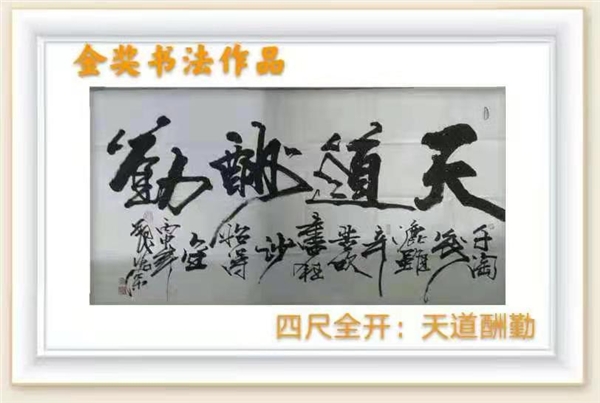 金奖书法作品
天道酬勤
千淘萬漉雖辛苦吹盡狂沙始得金
四尺全开：天道酬勤